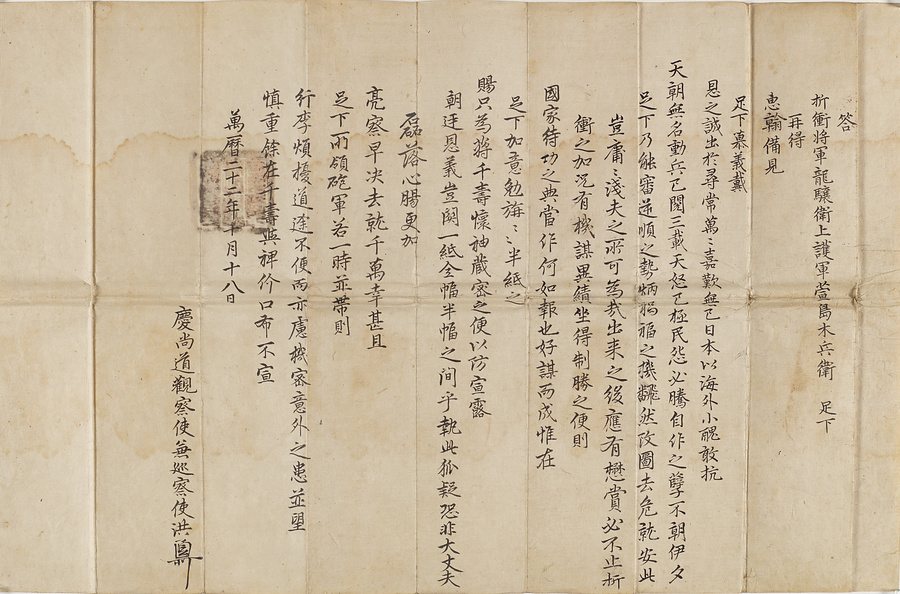 答
折衝將軍龍驤衛上護軍萱島木兵衛 足下
再得
惠翰備見
足下慕義戴
恩之誠出於尋常萬〻嘉歎無已日本以海外小醜敢抗
天朝無名動兵已閱三載天怒已極民怨必騰自作之孼不朝伊夕
足下乃能審逆順之勢炳禍福之機飜然改圖去危就安此
豈庸〻淺夫之所可為哉出来之後應有懋賞必不止折
衝之加况有機謀異績坐得制勝之便則
國家待功之典當作何如報也好謀而成惟在
足下加意勉旃〻半紙之
賜只為將千壽懷袖藏密之便以防宣露
朝廷恩義豈関一紙全幅半幅之间乎執此狐疑恐非大丈夫
磊落心腸更加
亮察早决去就千萬幸甚且
足下所領砲軍若一時並帶則
行李煩擾道途不便而亦慮機密意外之患並望
慎重餘在千壽與裨价口布不宣
萬曆二十二年十月十八日
慶尚道觀察使兼巡察使洪